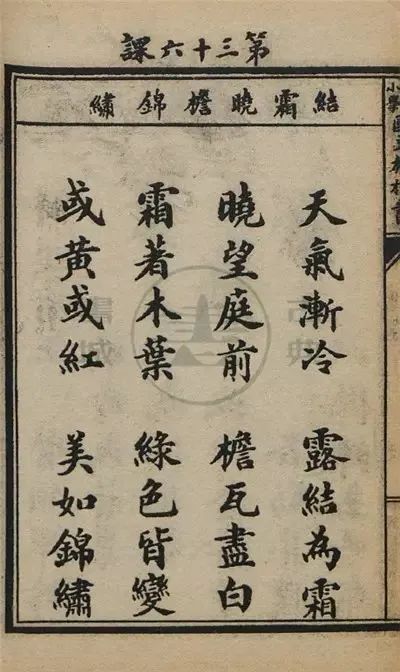 第三十六課
結霜曉檐錦繡
天氣漸冷 露結為霜
曉望庭前 檐瓦盡白
霜著木葉 綠色皆變
或黃或紅 美如錦繡
小學